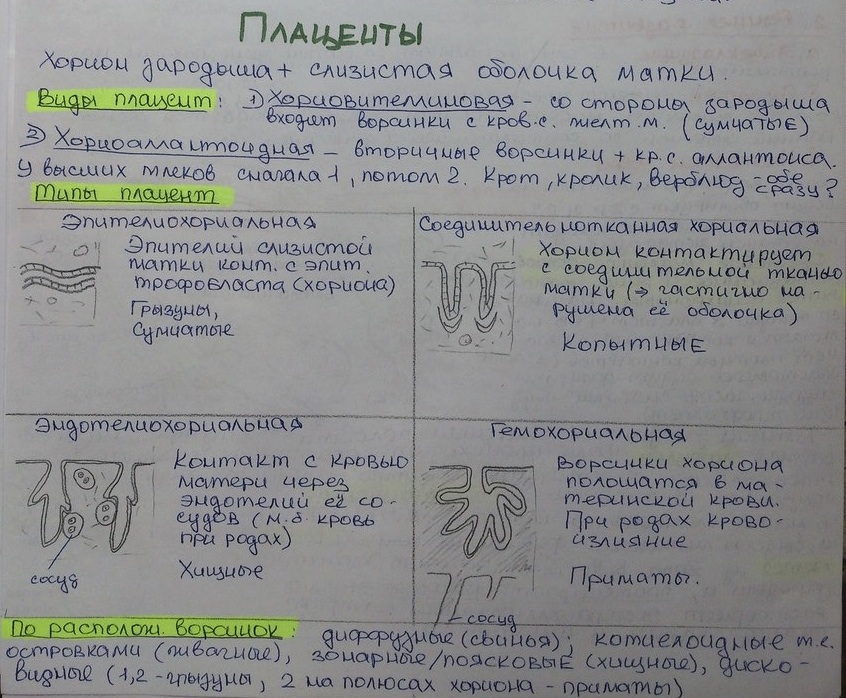 Плаценты
Хорион зародыша + слизистая оболочка матки.
Виды плацент: 1) Хориовителлиновая - со стороны зародыша
входят ворсинки с кров.с. желт.м. (сумчатые)
2) Хориоаллантоидная - вторичные ворсинки + кр.с. аллантоиса.
У высших млеков сначала 1, потом 2. Крот, кролик, верблюд - обе
сразу?
Типы плацент
Эпителиохориальная
Эпителий слизистой
матки конт. с эпит.
трофобласта (хориона)
Грызуны,
Сумчатые
Соединительнотканная хориальная
Хорион контактирует
с соединительной тканью
матки (→ частично на-
рушена её оболочка)
Копытные
Эндотелиохориальная
Контакт с кровью
матери через
эндотелий её со-
судов (м.б. кровь
при родах)
Хищные
сосуд
Гемохориальная
Ворсинки хориона
полощатся в ма-
теринской крови.
При родах крово-
излияние
Приматы.
сосуд
По располож. ворсинок: диффузные (свинья); котиелоидные т.е.
островками (жвачные), зонарные/поясковые (хищные), диско-
видные (1,2 - грызуны, 2 на полюсах хориона - приматы)